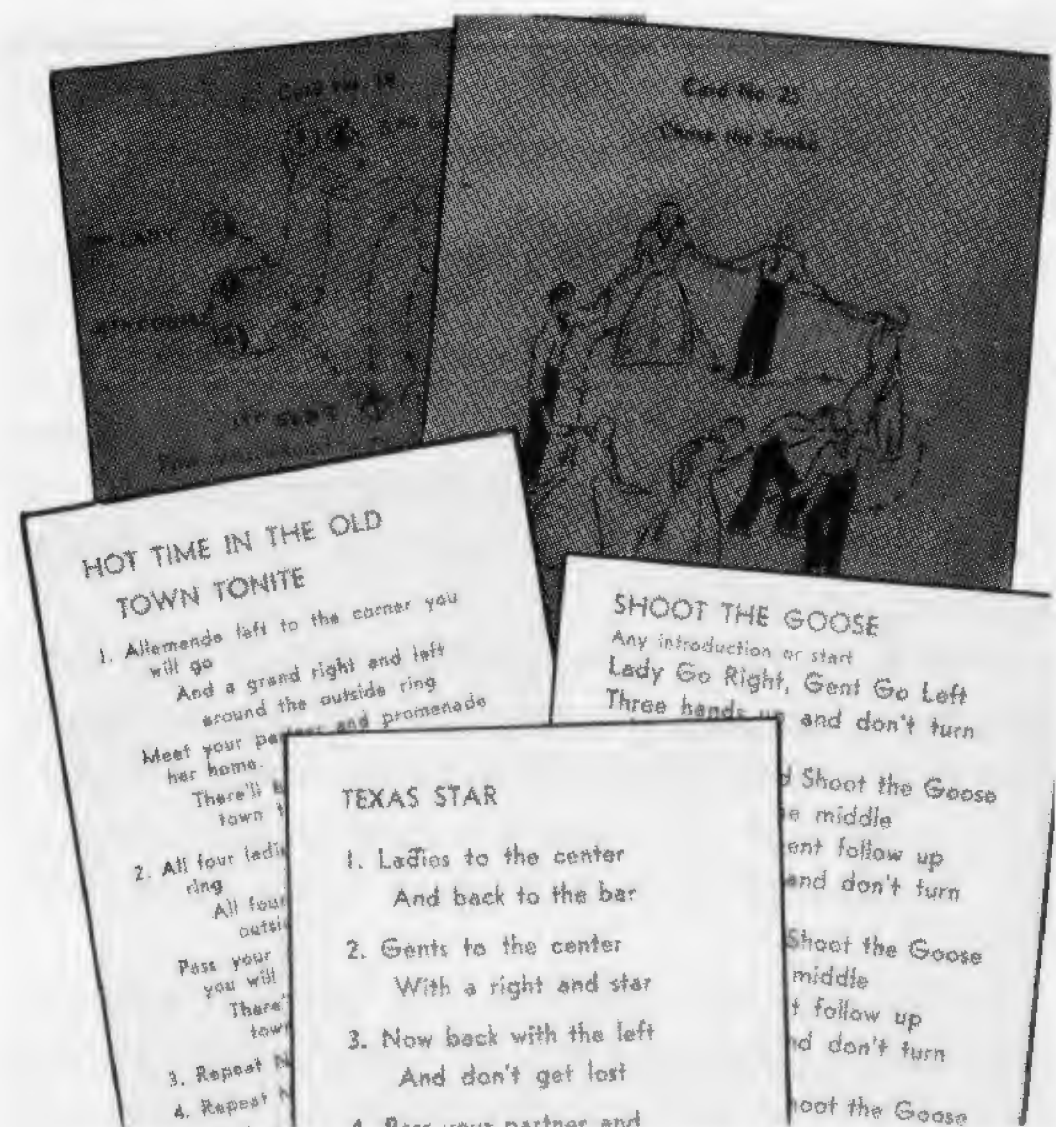 Card No. 18
Card No. 25
Chase the Snake
LADY
HOT TIME IN THE OLD
TOWN TONITE
1. Allemande left to the corner you
will go
And a grand right and left
around the outside ring
Meet your and promenade
her home.
There'll
town
2. All four
ring
All four
Pass your
you will
town
3. Repeat
4. Repeat
SHOOT THE GOOSE
Any introduction or start
Lady Go Right, Gent Go Left
Three hands up and don't turn
Shoot the Goose
middle
follow up
and don't turn
Shoot the Goose
middle
follow up
don't turn
the Goose
TEXAS STAR
1. Ladies to the center
And back to the bar
2. Gents to the center
With a right and star
3. Now back with the left
And don't get lost
4. Pass your partner and